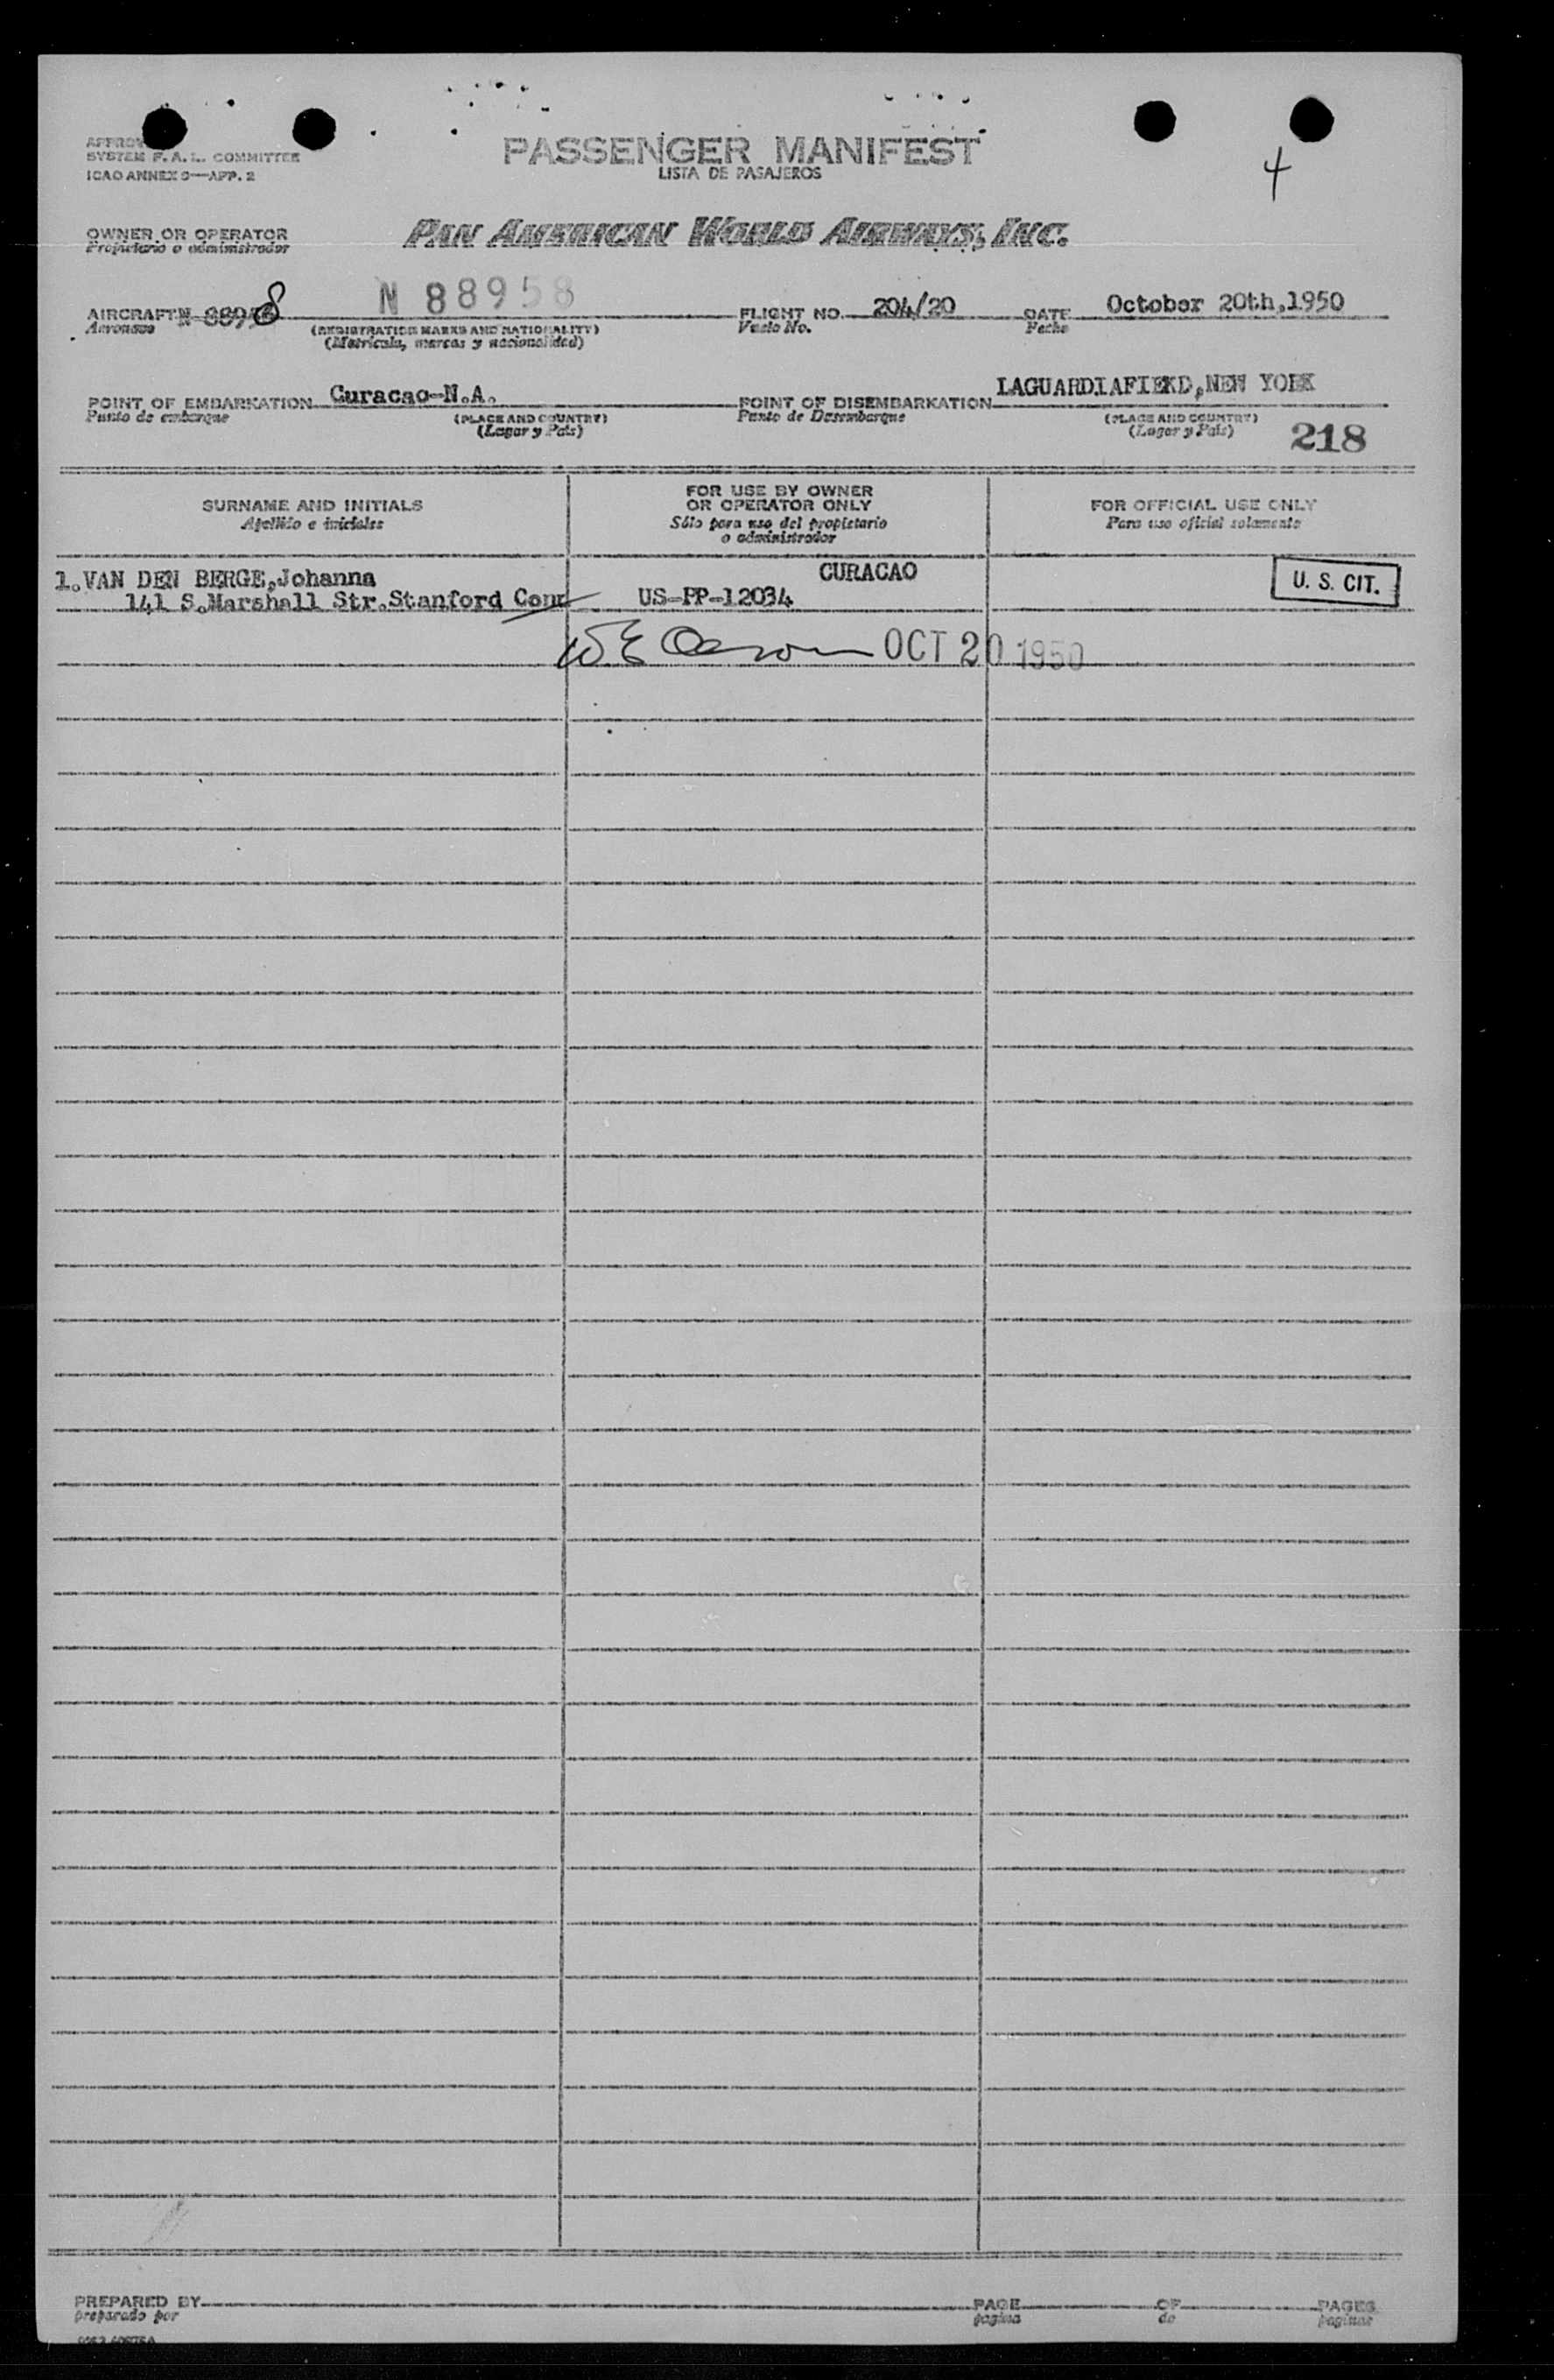 PASSENGER MANIFEST
LISTA DE PASAJEROS
4
SYSTEM F. A. L. COMMITTEE
ICAO ANNEX 9—APP. 2
OWNER OR OPERATOR
Propietario o administrador
PAN AMERICAN WORLD AIRWAYS, INC.
N 88958
AIRCRAFT N 8895 8
Aeronave
(REGISTRATION MARKS AND NATIONALITY)
(Matricula, marcas y nacionalidad)
FLIGHT NO. 204/20
Vuelo No.
DATE October 20th,1950
Fecha
POINT OF EMBARKATION Curacao-N.A.
Punto de embarque
(PLACE AND COUNTRY)
(Lugar y País)
POINT OF DISEMBARKATION LAGUARDIAFIEKD,NEW YORK
Punto de Desembarque
(PLACE AND COUNTRY)
(Lugar y País)
218
SURNAME AND INITIALS
Apellido e iniciales
FOR USE BY OWNER
OR OPERATOR ONLY
Sólo para uso del propietario
o administrador
FOR OFFICIAL USE ONLY
Para uso oficial solamente
1.VAN DEN BERGE,Johanna
CURACAO
U. S. CIT.
141 S.Marshall Str.Stanford Conn
US-PP-12034
OCT 20 1950
PREPARED BY
preparado por
PAGE
pagina
OF
de
PAGES
paginas